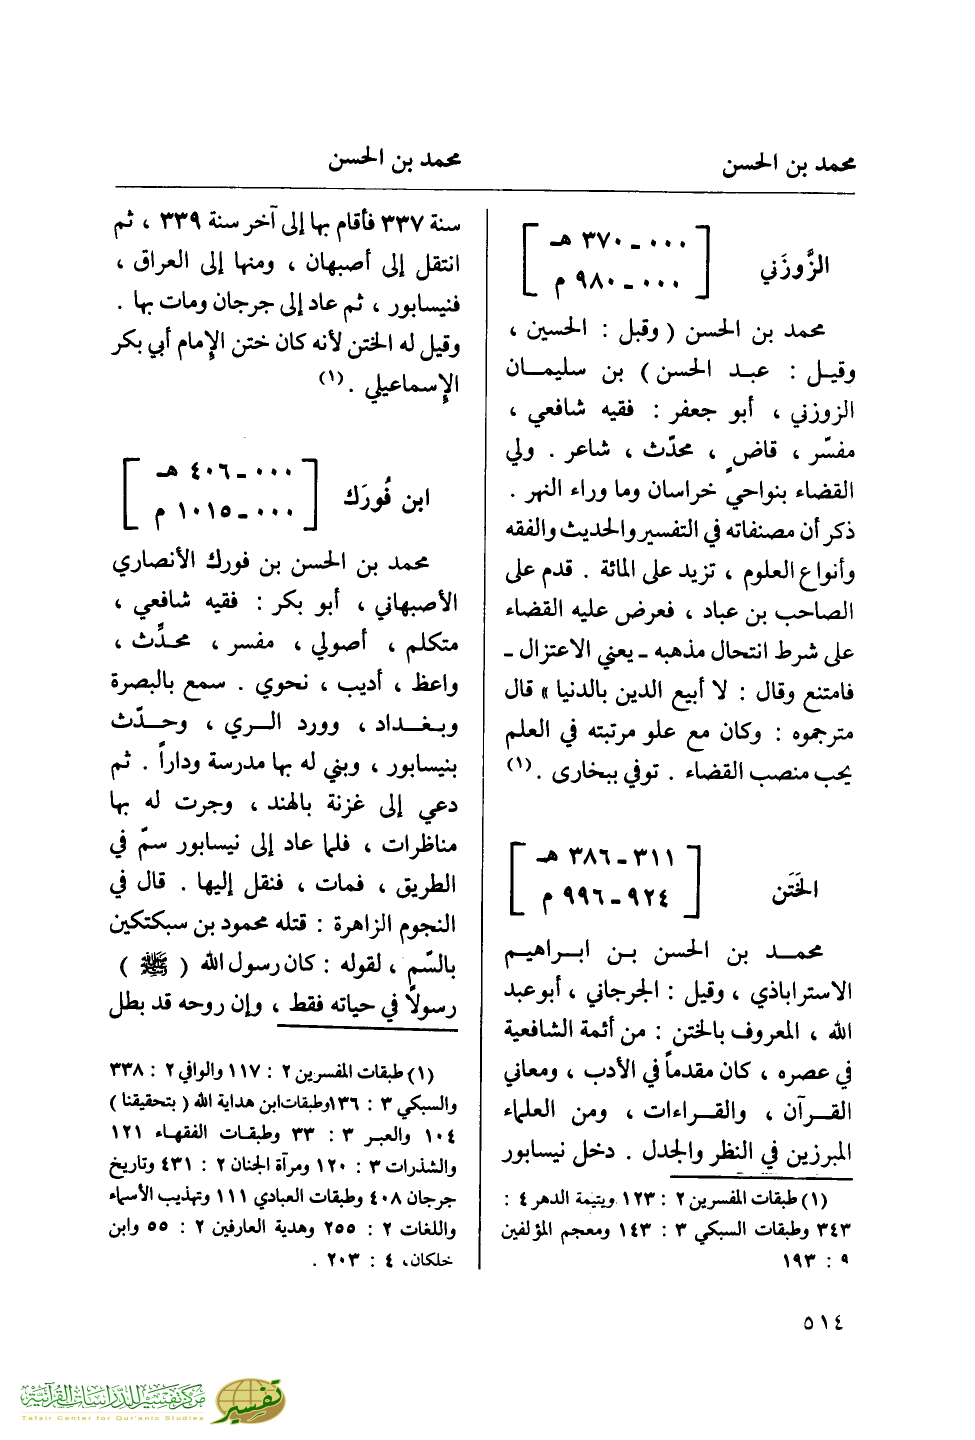 محمد بن الحسن
محمد بن الحسن
الزَّوزَني
٠٠٠ ـ ٣٧٠ هـ
٠٠٠ ـ ٩٨٠ م
محمد بن الحسن ( وقبل : الحسين ،
وقيل : عبد الحسن ) بن سليمان
الزوزني ، أبو جعفر : فقيه شافعي ،
مفسّر ، قاضٍ ، محدّث ، شاعر . ولي
القضاء بنواحي خراسان وما وراء النهر .
ذكر أن مصنفاته في التفسير والحديث والفقه
وأنواع العلوم ، تزيد على المائة . قدم على
الصاحب بن عباد ، فعرض عليه القضاء
على شرط انتحال مذهبه ـ يعني الاعتزال ـ
فامتنع وقال : لا أبيع الدين بالدنيا » قال
مترجموه : وكان مع علو مرتبته في العلم
يحب منصب القضاء . توفي ببخارى .(١)
الخَتَن
٣١١ ـ ٣٨٦ هـ
٩٢٤ ـ ٩٩٦ م
محمد بن الحسن بن ابراهيم
الاستراباذي ، وقيل : الجرجاني ، أبو عبد
الله ، المعروف بالختن : من أئمة الشافعية
في عصره ، كان مقدماً في الأدب ، ومعاني
القرآن ، والقراءات ، ومن العلماء
المبرزين في النظر والجدل . دخل نيسابور
(١) طبقات المفسرين ٢ : ١٢٣ ويتيمة الدهر ٤ :
٣٤٣ وطبقات السبكي ٣ : ١٤٣ ومعجم المؤلفين
٩ : ١٩٣
سنة ٣٣٧ فأقام بها إلى آخر سنة ٣٣٩ ، ثم
انتقل إلى أصبهان ، ومنها إلى العراق ،
فنيسابور ، ثم عاد إلى جرجان ومات بها .
وقيل له الختن لأنه كان ختن الإمام أبي بكر
الإسماعيلي .(١)
ابن فُورَك
٠٠٠ ـ ٤٠٦ هـ
٠٠٠ ـ ١٠١٥ م
محمد بن الحسن بن فورك الأنصاري
الأصبهاني ، أبو بكر : فقيه شافعي ،
متكلم ، أصولي ، مفسر ، محدَّث ،
واعظ ، أديب ، نحوي . سمع بالبصرة
وبغداد ، وورد الري ، وحدّث
بنيسابور ، وبني له بها مدرسة وداراً . ثم
دعي إلى غزنة بالهند ، وجرت له بها
مناظرات ، فلما عاد إلى نيسابور سمّ في
الطريق ، فمات ، فنقل إليها . قال في
النجوم الزاهرة : قتله محمود بن سبكتكين
بالسّم ، لقوله : كان رسول الله ( ﷺ )
رسولاً في حياته فقط ، وإن روحه قد بطل
(١) طبقات المفسرين ٢ : ١١٧ والوافي ٢ : ٣٣٨
والسبكي ٣ : ١٣٦ وطبقات ابن هداية الله ( بتحقيقنا )
١٠٤ والعبر ٣ : ٣٣ وطبقات الفقهاء ١٢١
والشذرات ٣ : ١٢٠ ومرآة الجنان ٢ : ٤٣١ وتاريخ
جرجان ٤٠٨ وطبقات العبادي ١١١ وتهذيب الأسماء
واللغات ٢ : ٢٥٥ وهدية العارفين ٢ : ٥٥ وابن
خلكان، ٤ : ٢٠٣ .
٥١٤
مركز تفسير للدراسات القرآنية
Tafsir Center for Qur'anic Studies
تفسير